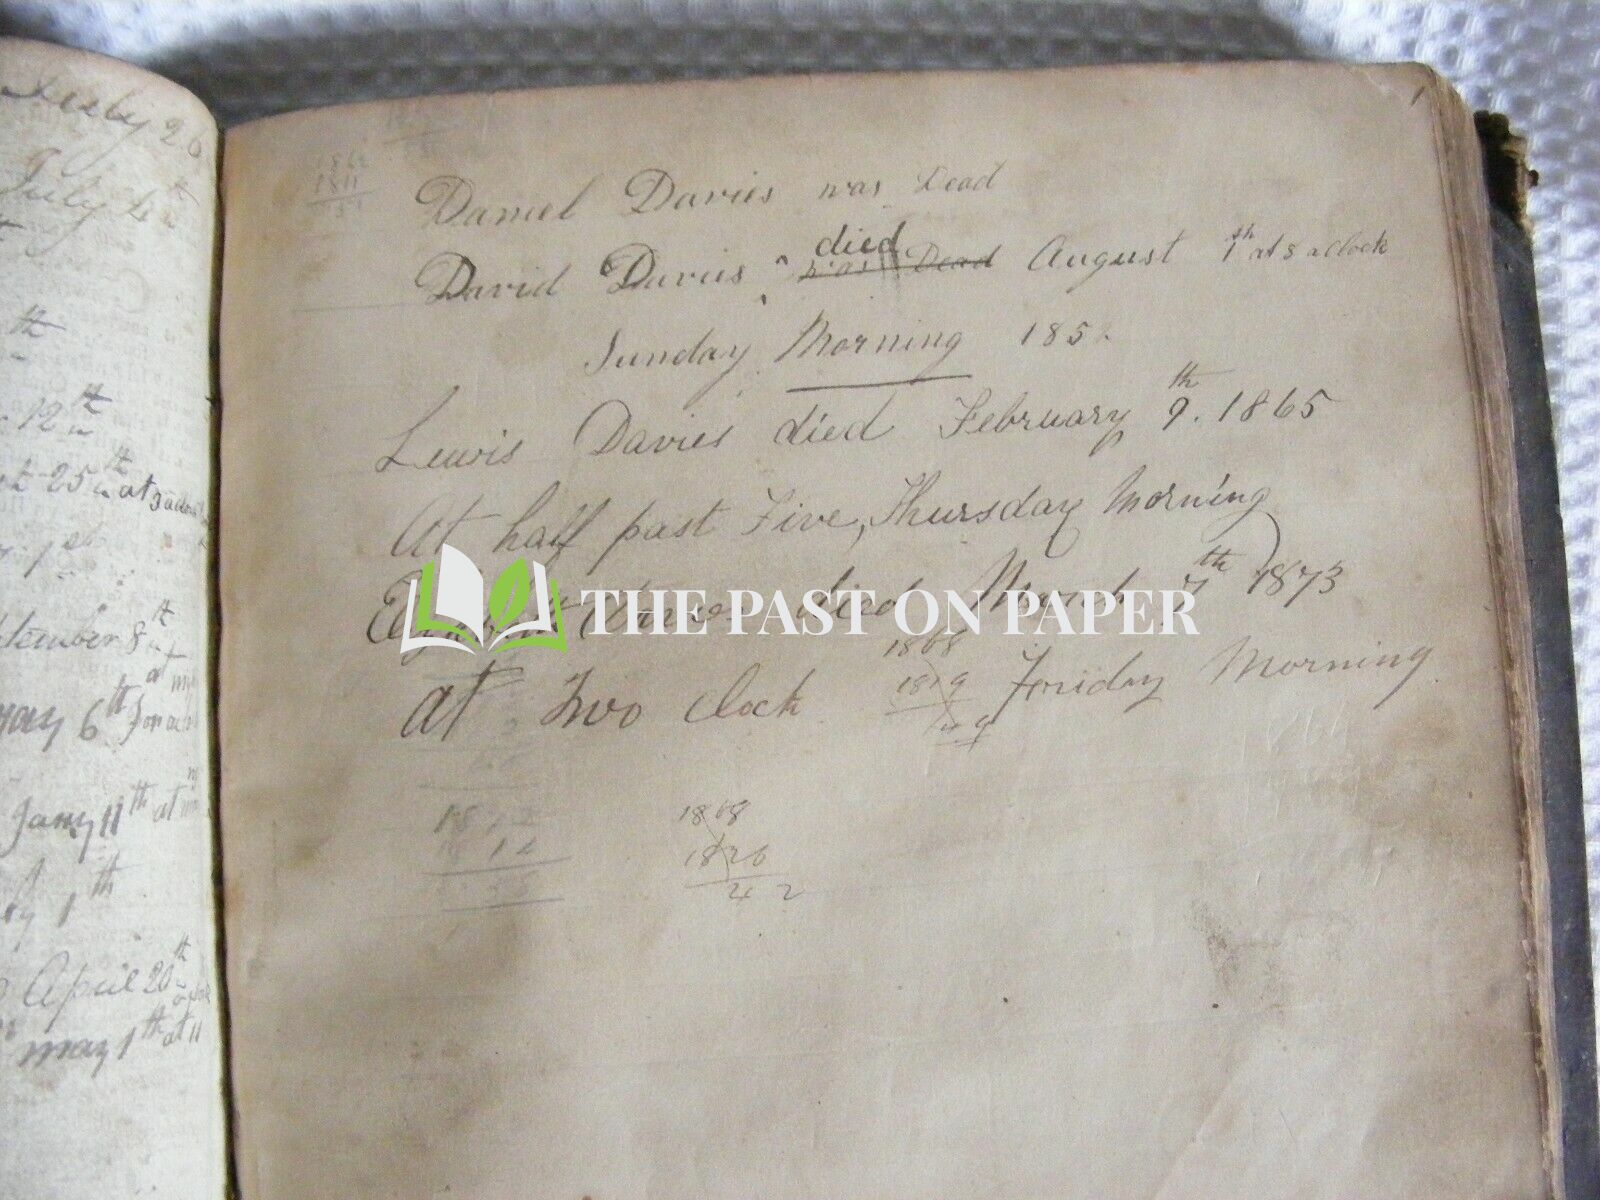 July 26
July 4th
th
12th
25th at 3 aclock
1st
September 8th
at
6th
Jany 11th at
1th
April 20th
may 1th at 11
Daniel Davies was Dead
died
David Davies was Dead August 1th at 8 aclock
Sunday Morning 185
Lewis Davies died February 9th. 1865
At half past Five, Thursday Morning
died March 7th 1873
THE PAST ON PAPER
at Two clock Friday Morning
1868
1819
49
1862
1811
12
1868
1826
42